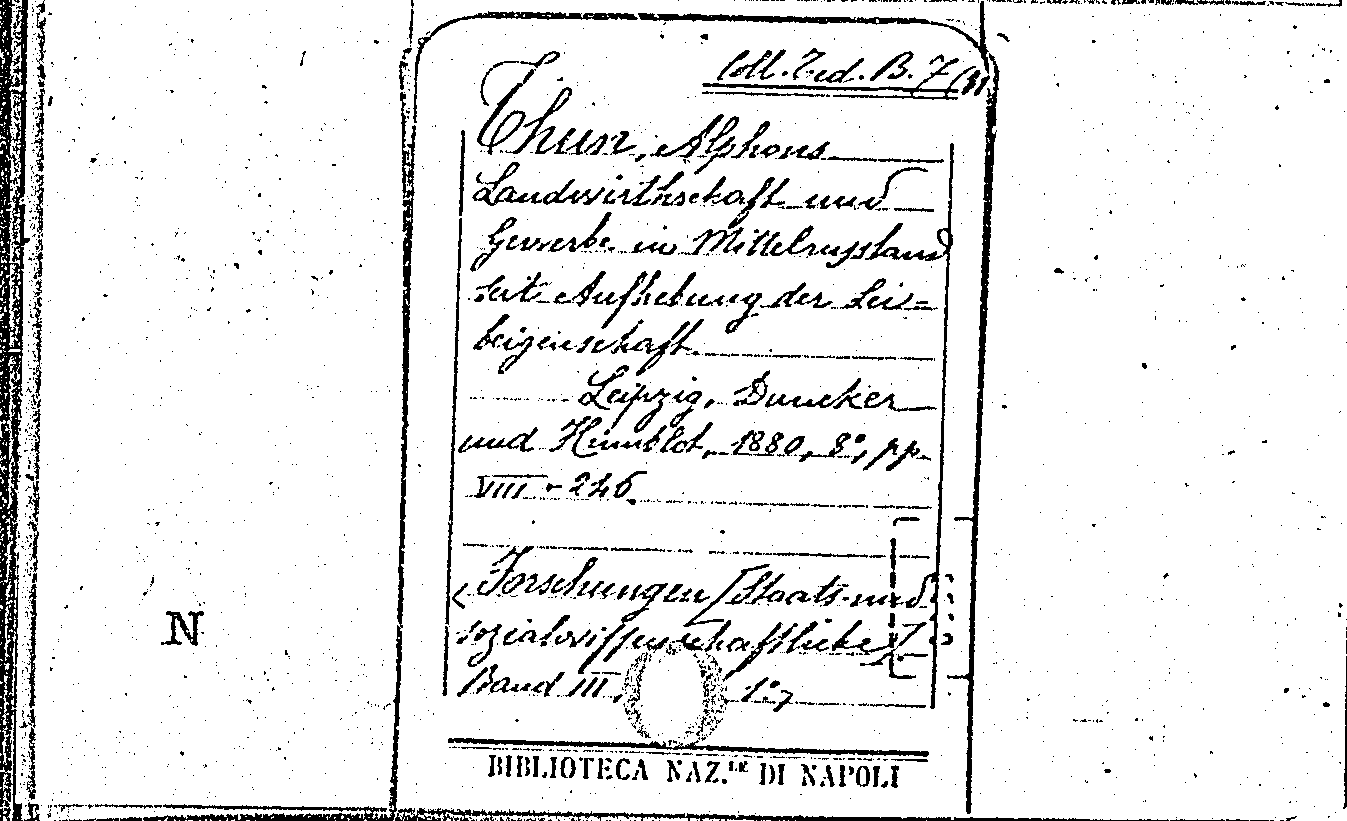 Coll. Ted. B. 7 (31
Thun, Alphons
Landwirthschaft und
Gewerbe in Mittelrussland
seit Aufhebung der Lei=
beigenschaft.
Leipzig, Duncker
und Humblot, 1880, 8°, pp.
VIII - 246.
< Forschungen [Staats- und
sozialwissenschaftliche]
Band III, 1°>
N
BIBLIOTECA NAZ.LE DI NAPOLI